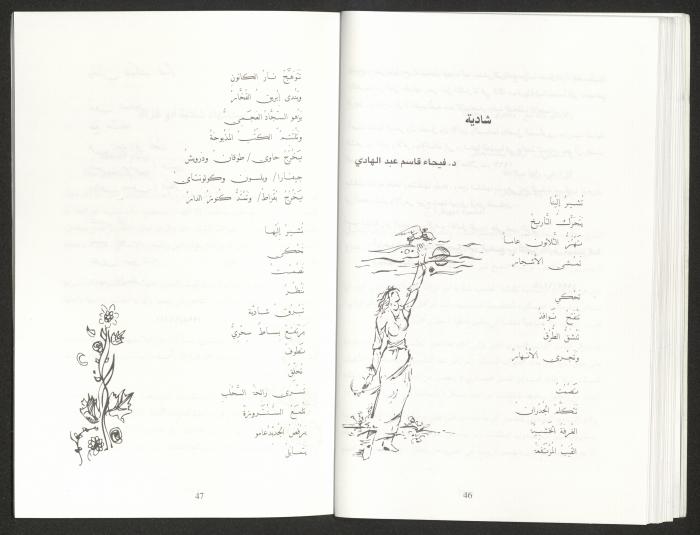 شادية
د. فيحاء قاسم عبد الهادي
تُشيرُ إلَيْنا
يَتحرّكُ التَّاريخُ
تَهتزُّ الثَّلاثون عاماً
تَمشي الأشْجارُ
تَحْكي
تُفتحُ نَوافذُ
تَنْشقُّ الطُّرقُ
وتَجري الأنْهارُ
تَصْمتُ
تَتكلّمُ الجُدرانُ
الغرفةُ الخشبيَّةُ
القببُ المُرتفعةُ
46
تتوهَّجُ نارُ الكانون
ويَندى إبريقُ الفَخَّارِ
يَزهو السجَّادُ العجَميُّ
وتَلْتمُّ الكتُبُ المذْبوحةُ
يَخرُجُ حاوي/ طوقانُ ودرويشُ
جيفارا/ ويلسون وكولونتايُ
يَخرُجُ بُقراطُ/ وتَمتدُّ كُنوزُ الدَّارِ
تُشيرُ إليْها
تَحْكي
تَصْمتُ
تَنْظرُ
تَشرقُ شاديَة
يرتفعُ بساطٌ سِحْريٌّ
تَطوفُ
تُحلّقُ
تَسْري رائحةُ السَّحْلبِ
تَلمعُ
يَرقصُ
يتمايلُ
47